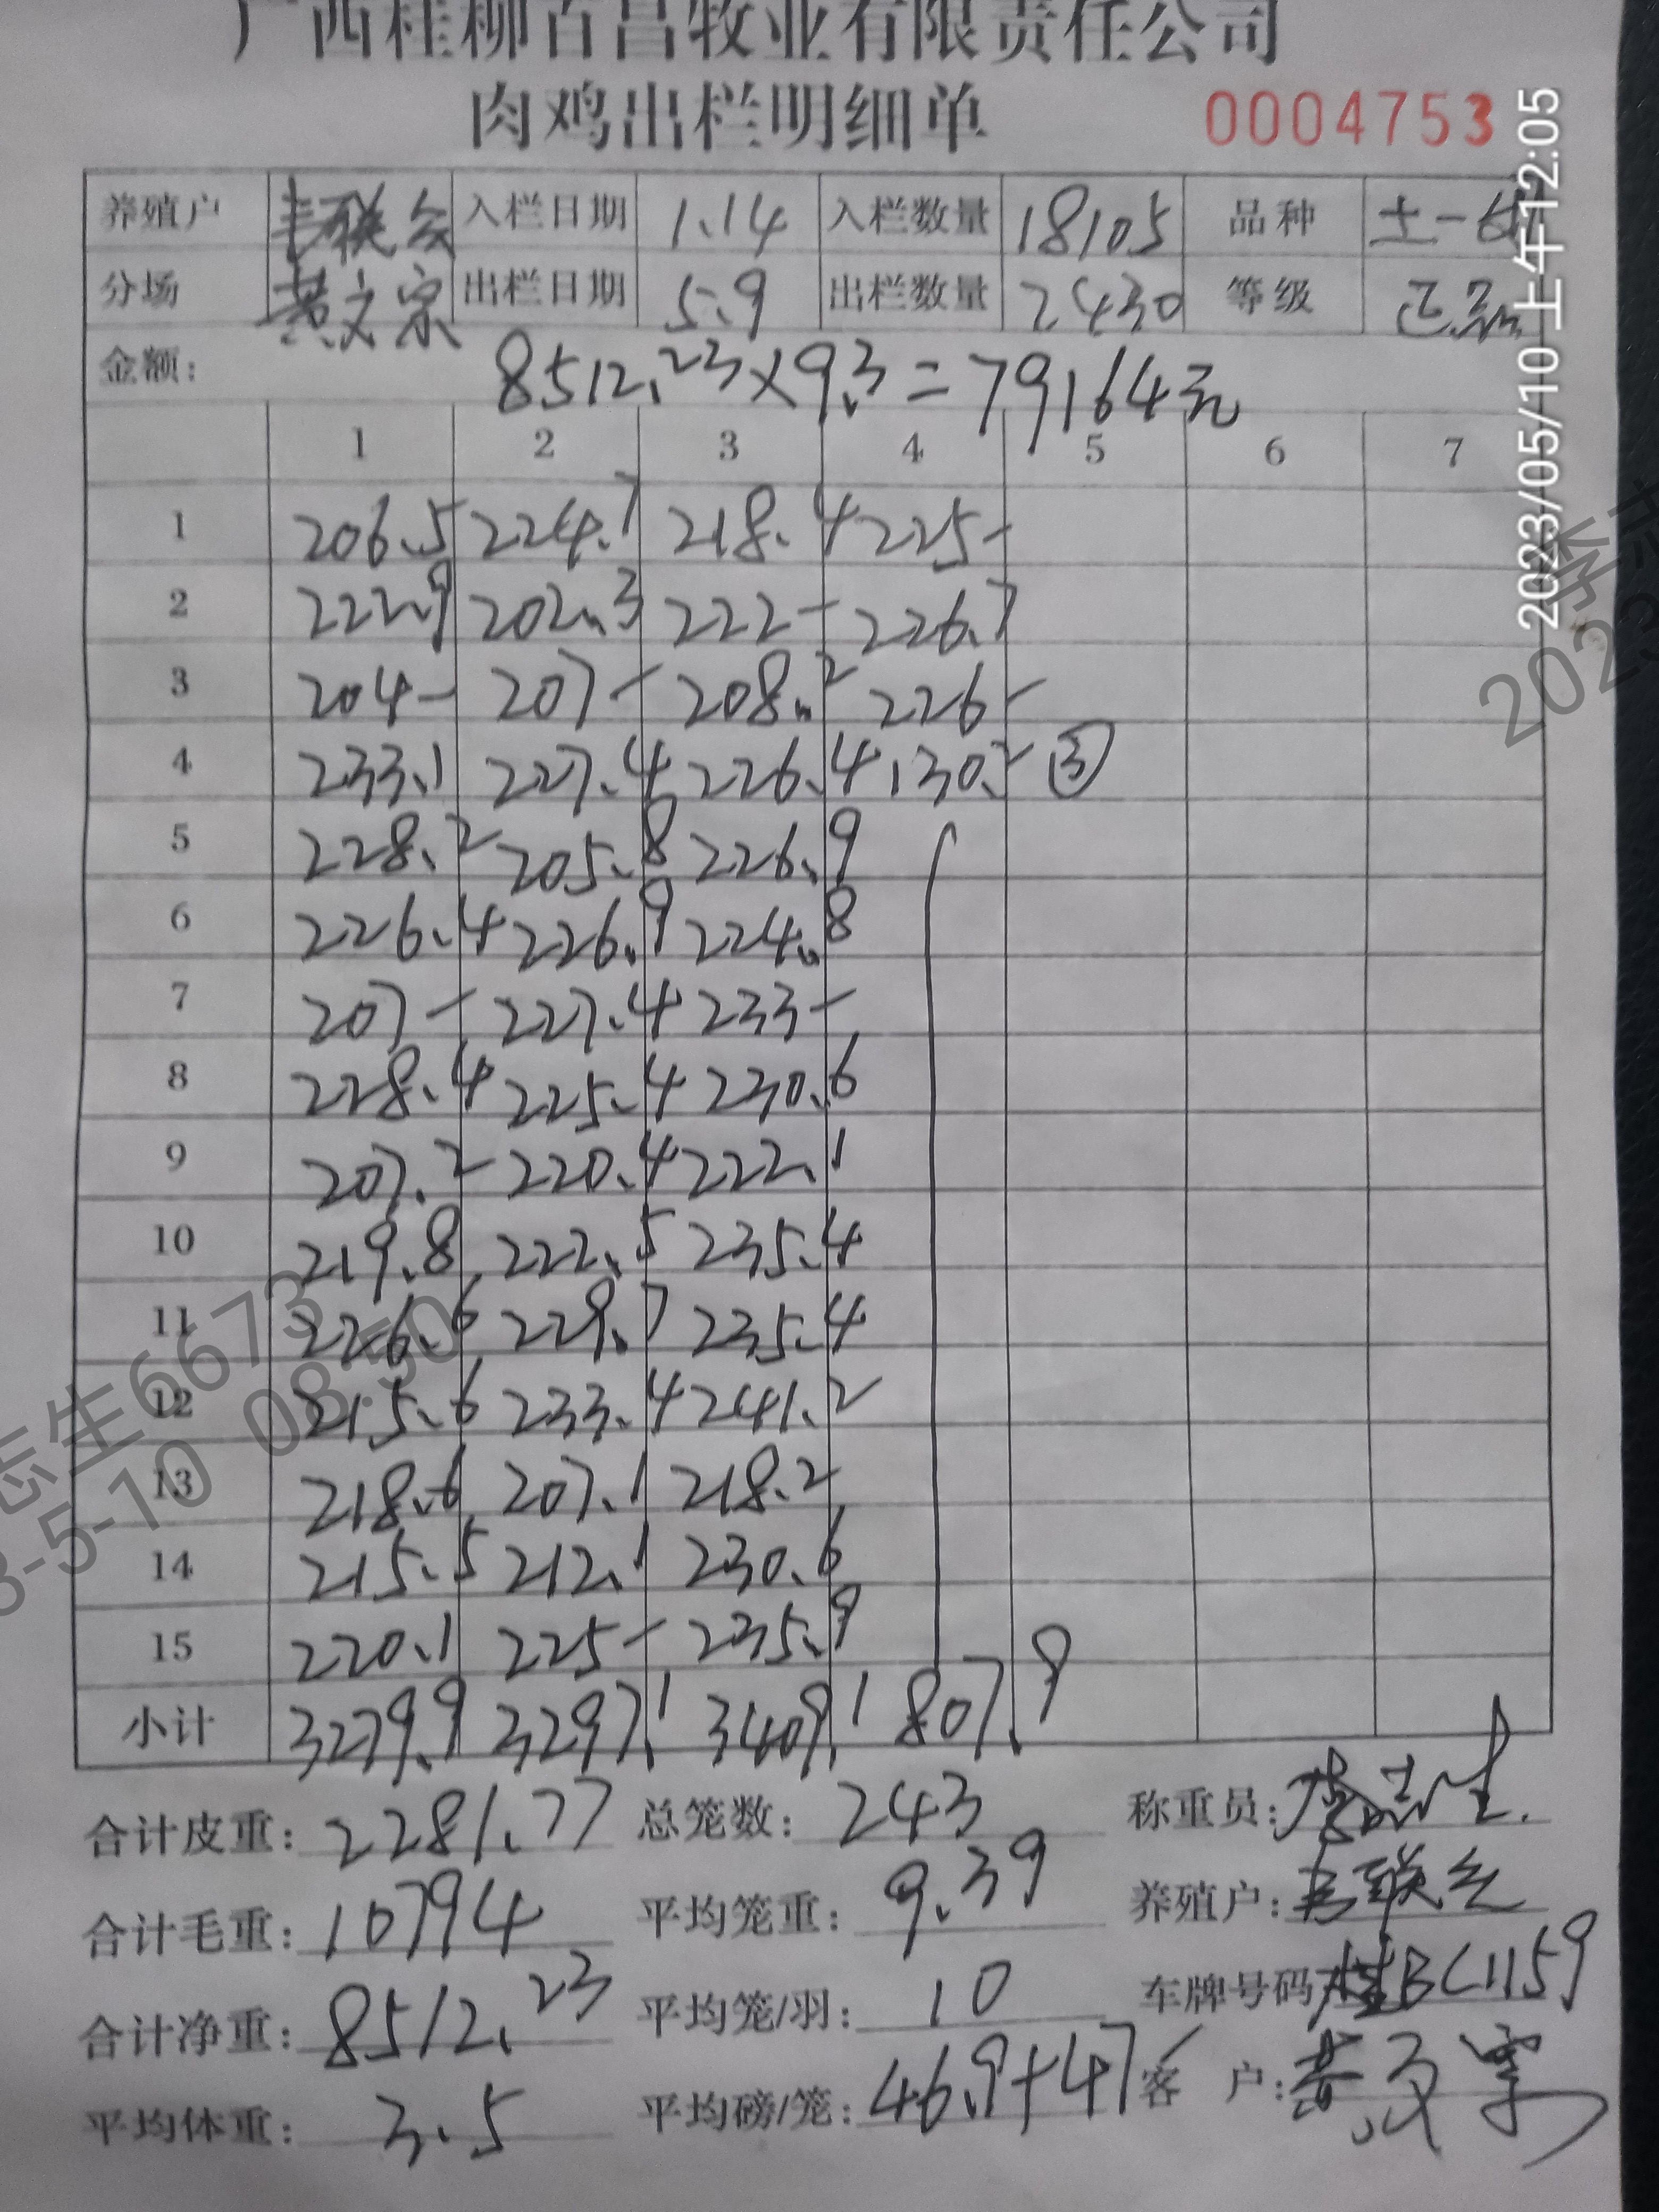 广西桂柳百昌牧业有限责任公司
肉鸡出栏明细单 0004753
养殖户 韦联会 入栏日期 1.14 入栏数量 18105 品种 土一
分场 黄文宗 出栏日期 5.9 出栏数量 2430 等级 正品
金额: 8512.23×9.3=79164元
1 2 3 4 5 6 7
1 206.5 224.7 218.4 225-
2 222.9 202.3 222- 226.7
3 204- 207- 208.2 226-
4 233.1 227.4 226.4 130.2 ③
5 228.2 205.8 226.9
6 226.4 226.9 224.8
7 207- 227.4 233-
8 228.4 225.4 230.6
9 207.2 220.4 222.1
10 219.8 222.5 235.4
11 226.6 229.7 235.4
12 215.6 233.4 241.2
13 218.6 207.1 218.2
14 215.5 212.1 230.6
15 220.1 225- 235.9
小计 3279.9 3297.1 3409.1 807.9
合计皮重: 2281.77 总笼数: 243 称重员:
合计毛重: 10794 平均笼重: 9.39 养殖户:
合计净重: 8512.23 平均笼/羽: 10 车牌号码 桂BC1159
平均体重: 3.5 平均磅/笼: 46.9+47 客 户:
2023/05/10 上午12:05
志生6673
3-5-10 08:50
202